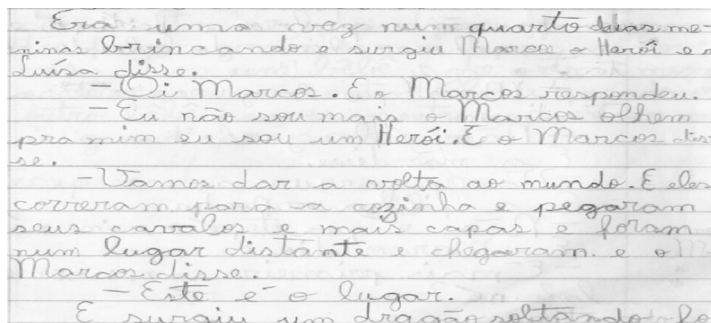 Era uma vez num quarto duas me-
ninas brincando e surgiu Marcos o Herói e a
Luísa disse.
— Oi Marcos. E o Marcos respondeu.
— Eu não sou mais o Marcos olhem
pra mim eu sou um Herói. E o Marcos dis-
se.
— Vamos dar a volta ao mundo. E eles
correram para a cozinha e pegaram
seus cavalos e mais capas e foram
num lugar distante e chegaram e o
Marcos disse.
— Este é o lugar.
E surgiu um dragão soltando fo